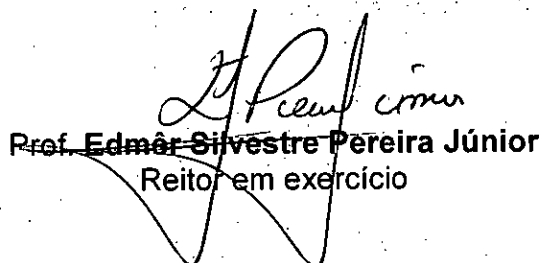 Prof. Edmâr Silvestre Pereira Júnior
Reitor em exercício